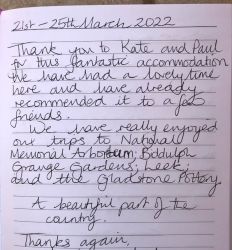 21st - 25th March 2022
Thank you to Kate and Paul
for this fantastic accommodation
We have had a lovely time
here and have already
recommended it to a few
friends.
We have really enjoyed
our trips to National
Memorial Arboretum; Biddulph
Grange Gardens; Leek;
and the Gladstone Pottery.
A beautiful part of the
country.
Thanks again,